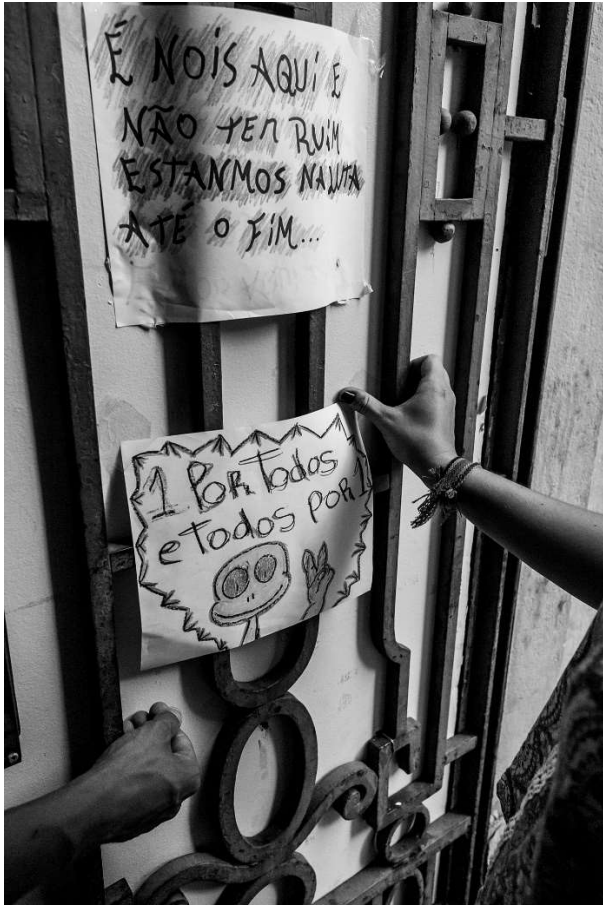 É NOIS AQUI E
NÃO TEM RUIM
ESTANMOS NA LUTA
ATÉ O FIM...
1 POR TODOS
e TODOS POR 1